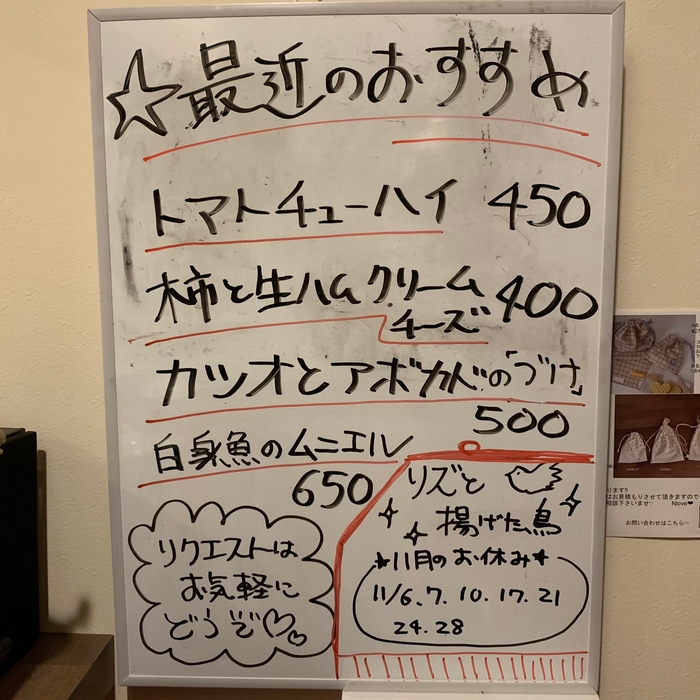 ☆最近のおすすめ
トマトチューハイ 450
柿と生ハムクリームチーズ 400
カツオとアボカドの「づけ」
500
白身魚のムニエル
650
リクエストは
お気軽に
どうぞ♡♡
リズと
揚げた鳥
★11月のお休み★
11/6.7.10.17.21
24.28
ります!!
はお見積もりさせて頂きますので
相談下さいませ♡ Nlove❤
お問い合わせはこちら